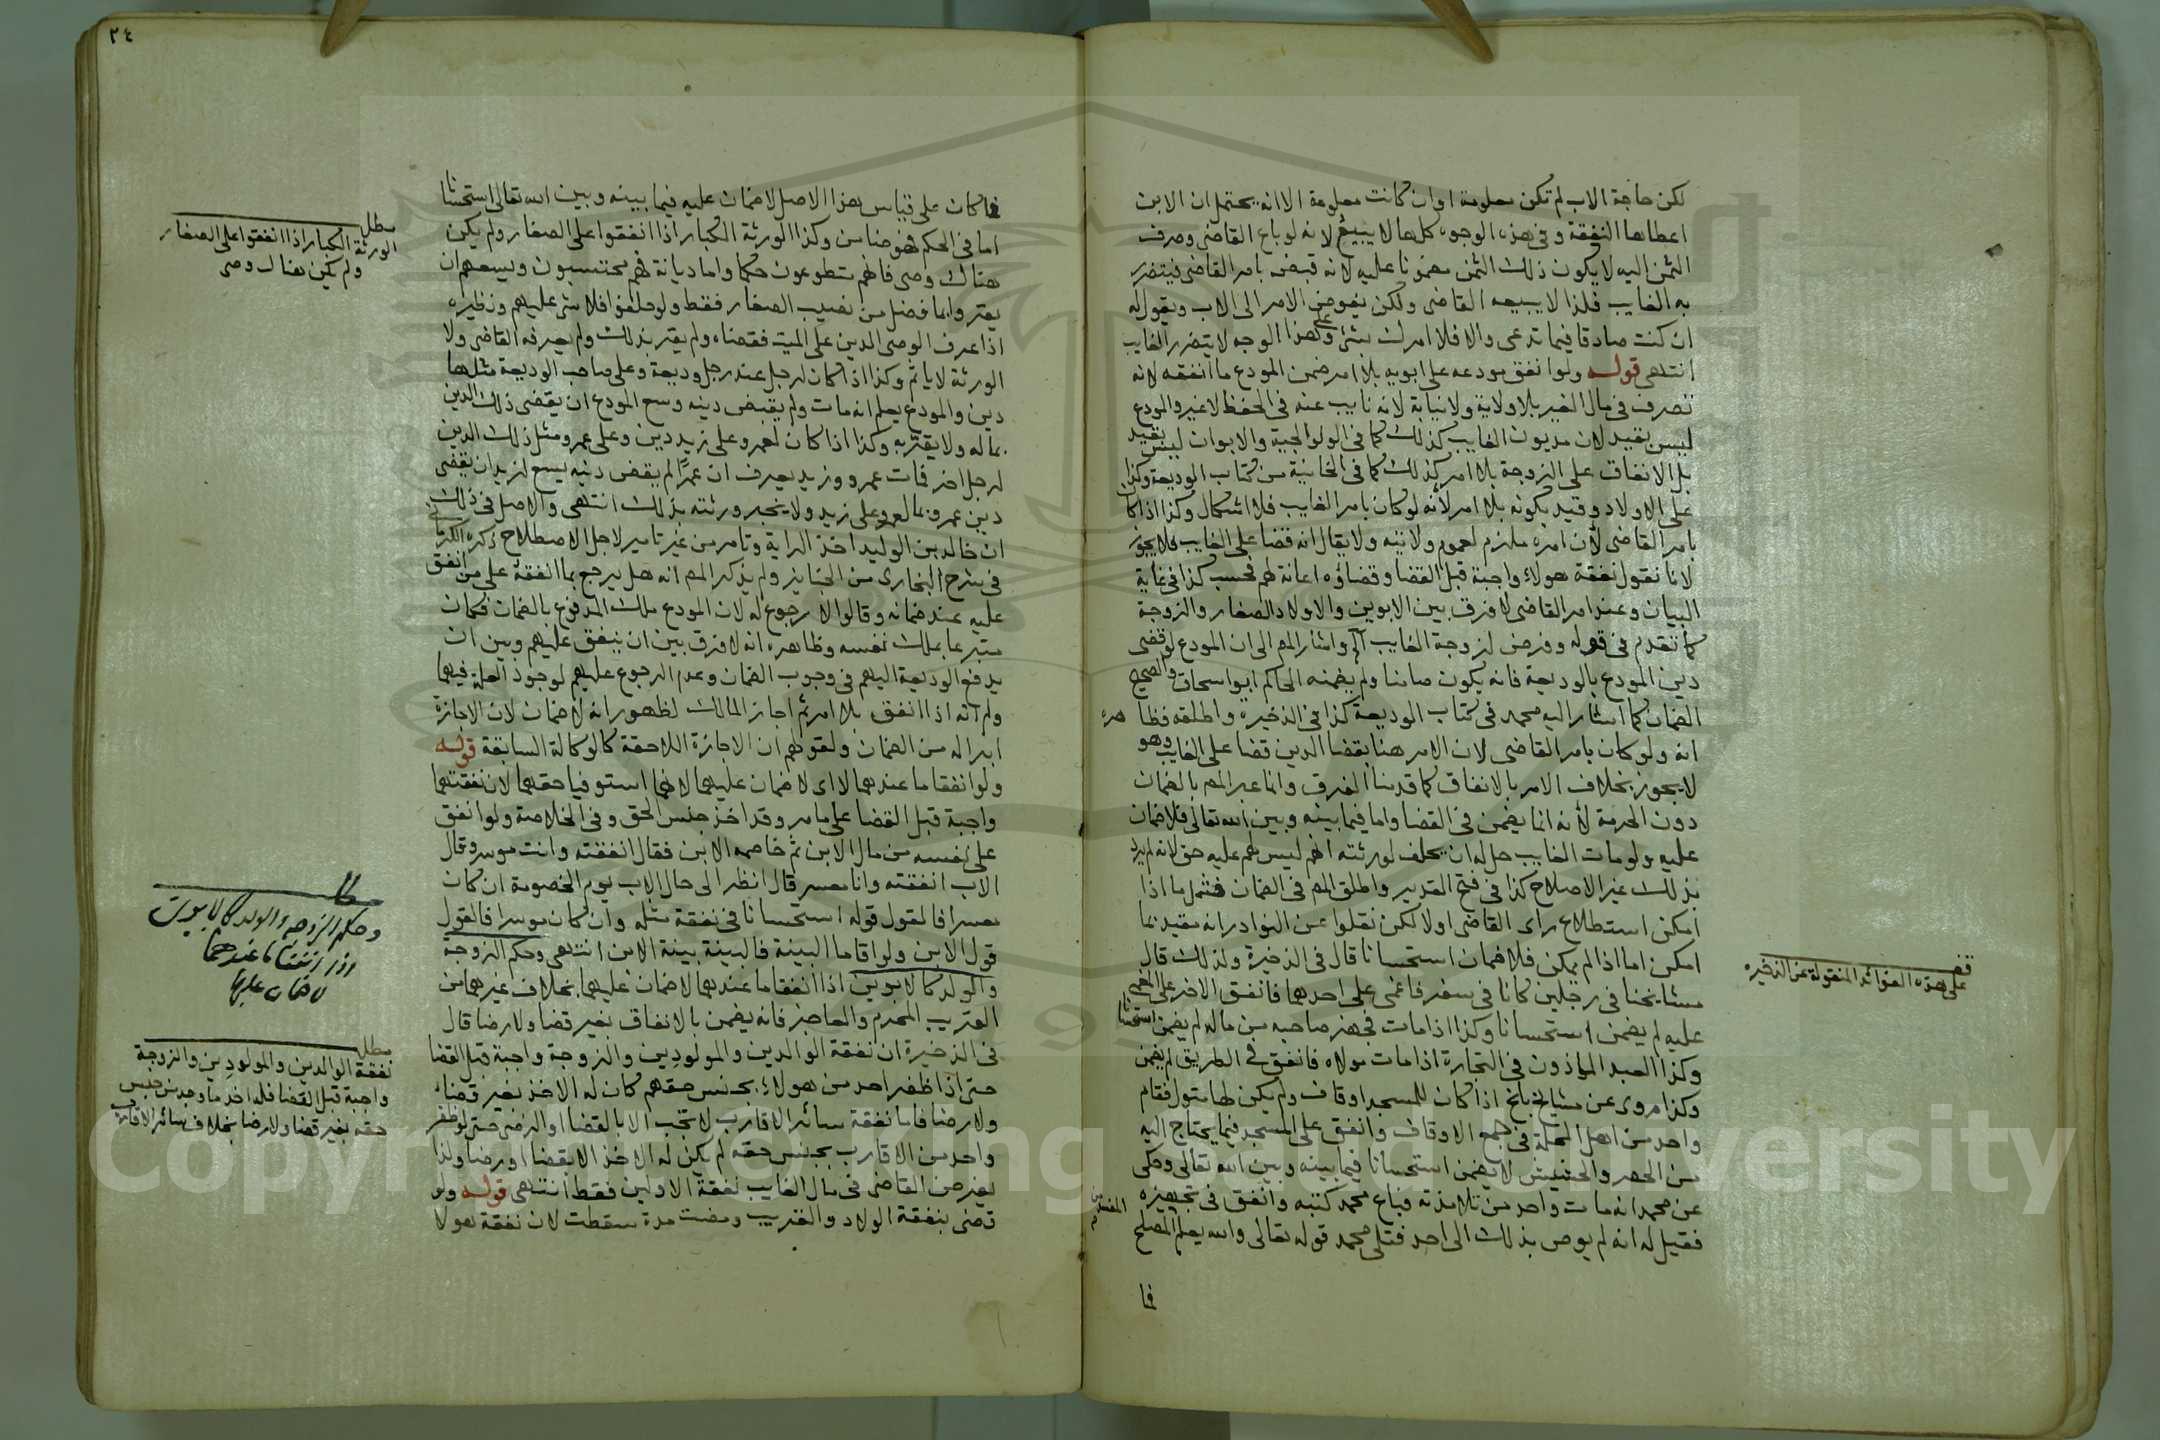 لكن حاجة الاب لم تكن معلومة او ان كانت معلومة الا انه يحتمل ان الابن
اعطاها النفقة وفي هذه الوجوه كلها لا يبيع لانه لو باع القاضي وصرف
الثمن اليه لا يكون ذلك الثمن مضمونا عليه لانه قبضه بامر القاضي فيتضرر
به الغايب فلذا لا يبيعه القاضي ولكن يفوض الامر الى الاب ويقول له
ان كنت صادقا فيما تدعى والا فلا امرك بشئ وعلى هذا الوجه لا يتضرر الغايب
انتهى قوله ولو انفق مودعه على ابويه بلا امر ضمن المودع ما انفقه لانه
تصرف في مال الغير بلا ولاية ولا نيابة لانه نايب عنه في الحفظ لا غير والمودع
ليس بقيد لان مديون الغايب كذلك كما في الولوالجية والابوان ليس بقيد
بل الانفاق على الزوجة بلا امر كذلك كما في الخانية من كتاب الوديعة وكذا
على الاولاد وقيد بكونه بلا امر لانه لو كان بامر الغايب فلا اشكال وكذا اذا كان
بامر القاضي لان امره ملزم لعموم ولايته ولا يقال انه قضا على الغايب فلا يجوز
لانا نقول نفقة هولاء واجبة قبل القضا وقضاؤه اعانة لهم فحسب كذا في غاية
البيان وعند امر القاضي لا فرق بين الابوين والاولاد الصغار والزوجة
كما تقدم في قوله وفرض لزوجة الغايب الخ واشار المص الى ان المودع لو قضى
دين المودع بالوديعة فانه يكون ضامنا ولم يضمنه الحاكم ابو اسحاق والصحيح
الضمان كما اشار اليه محمد في كتاب الوديعة كذا في الذخيرة واطلقه فظاهره
انه ولو كان بامر القاضي لان الامر هنا بقضا الدين قضا على الغايب وهو
لا يجوز بخلاف الامر بالانفاق كما قدمنا الفرق وانما عبر المص بالضمان
دون الحرمة لانه انما يضمن في القضا واما فيما بينه وبين الله تعالى فلا ضمان
عليه ولو مات الغايب حل له ان يحلف لورثته انهم ليس لهم عليه حق لانه لم يرد
بذلك غير الاصلاح كذا في فتح القدير واطلق المص في الضمان فشمل ما اذا
امكن استطلاع راى القاضي او لا لكن نقلوا عن النوادر انه مقيد بما
امكن اما اذا لم يمكن فلا ضمان استحسانا قال في الذخيرة ولذلك قال
مشايخنا في رجلين كانا في سفر فاغمى على احدهما فانفق الاخر على المغمى
عليه لم يضمن استحسانا وكذا اذا مات فجهز صاحبه من ماله لم يضمن استحسانا
وكذا العبد الماذون في التجارة اذا مات مولاه فانفق في الطريق لم يضمن
وكذا مروى عن مشايخ بلخ اذا كان للمسجد اوقاف ولم يكن لها متول فقام
واحد من اهل المحلة في جمع الاوقاف وانفق على المسجد فيما يحتاج اليه
من الحصر والحشيش لا يضمن استحسانا فيما بينه وبين الله تعالى وحكى
عن محمد انه مات واحد من تلامذته فباع محمد كتبه وانفق في تجهيزه
فقيل له انه لم يوص بذلك الى احد فتلى محمد قوله تعالى والله يعلم المفسد من المصلح
فما
قف
على هذه الفوائد المنقولة عن الذخيرة
٢٤
فما كان على قياس هذا الاصل لا ضمان عليه فيما بينه وبين الله تعالى استحسانا
اما في الحكم فهو ضامن وكذا الورثة الكبار اذا انفقوا على الصغار ولم يكن
هناك وصى فانهم متطوعون حكما واما ديانة فهم محتسبون ويسعهم ان
يقروا بما فضل من نصيب الصغار فقط ولو حلفوا فلا شئ عليهم ونظيره
اذا عرف الوصى الدين على الميت فقضاه ولم يقر بذلك ولم يعرفه القاضي ولا
الورثة لا ياثم وكذا اذا كان لرجل عند رجل وديعة وعلى صاحب الوديعة مثلها
دين والمودع يعلم انه مات ولم يقبض دينه وسع المودع ان يقضى ذلك الدين
بماله ولا يقر به وكذا اذا كان لعمرو على زيد دين وعلى عمرو مثل ذلك الدين
لرجل اخر فمات عمرو وزيد يعرف ان عمرًا لم يقض دينه يسع لزيد ان يقضى
دين عمرو بما لعمرو على زيد ولا يخبر ورثته بذلك انتهى والاصل في ذلك
ان خالد بن الوليد اخذ الراية وتامر من غير تامير لاجل الاصطلاح ذكره الكرماني
في شرح البخارى من الجنايز ولم يذكر المص انه هل يرجع بما انفقه على من انفق
عليه عند ضمانه وقالوا لا رجوع له لان المودع ملك المدفوع بالضمان فكان
متبرعا بملك نفسه وظاهره انه لا فرق بين ان ينفق عليهم وبين ان
يدفع الوديعة اليهم في وجوب الضمان وعدم الرجوع عليهم لوجود العلة فيهما
ولم انه اذا انفق بلا امر ثم اجاز المالك لظهور انه لا ضمان لان الاجازة
ابراله من الضمان ولقولهم ان الاجازة اللاحقة كالوكالة السابقة قوله
ولو انفقا ما عندهما لا اى لا ضمان عليهما لانهما استوفيا حقهما لان نفقتهما
واجبة قبل القضا على ما مر وقد اخذ جنس الحق وفي الخلاصة ولو انفق
على نفسه من مال الابن ثم خاصمه الابن فقال انفقته وانت موسر وقال
الاب انفقته وانا معسر قال انظر الى حال الاب يوم الخصومة ان كان
معسرا فالقول قوله استحسانا في نفقة مثله وان كان موسرا فالقول
قول الابن ولو اقاما البينة فالبينة بينة الابن انتهى وحكم الزوجة
والولد كالابوين اذا انفقا ما عندهما لا ضمان عليهما بخلاف غيرهما من
القريب المحرم والمعاصر فانه يضمن بالانفاق بغير قضا ولا رضا قال
في الذخيرة ان نفقة الوالدين والمولودين والزوجة واجبة قبل القضا
حتى اذا ظفر احد من هولاء بجنس حقهم كان له الاخذ بغير قضاء
ولا رضا فاما نفقة سائر الاقارب لا تجب الا بالقضا او الرضى حتى لو ظفر
واحد من الاقارب بجنس حقه لم يكن له الاخذ الا بقضا او رضا ولذا
يفرض القاضي في مال الغايب نفقة الاولين فقط انتهى قوله ولو
قضى بنفقة الولاد والقريب ومضت مدة سقطت لان نفقة هولا
مطلب
الورثة الكبار اذا انفقوا على الصغار
ولم يكن هناك وصى
مطلب
وحكم الزوجة والولد كالابوين
اذا انفقا ما عندهما
لا ضمان عليهما
مطلب
نفقة الوالدين والمولودين والزوجة
واجبة قبل القضا فله اخذ ما وجد من جنس
حقه بغير قضا ولا رضا بخلاف سائر الاقارب
Copyright © King Saud University